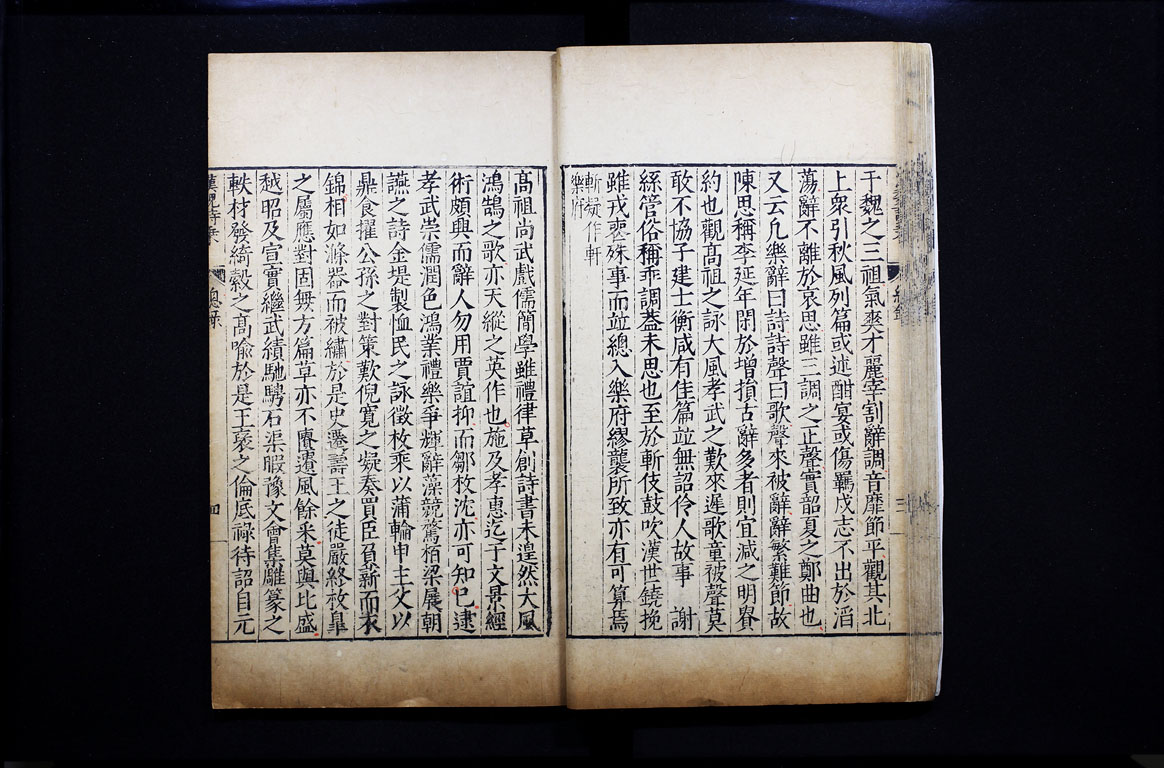 于魏之三祖氣爽才麗宰割辭調音靡節平觀其北
上衆引秋風列篇或述酣宴或傷羈戍志不出於滔
蕩辭不離於哀思雖三調之正聲實韶夏之鄭曲也
又云凢樂辭曰詩詩聲曰歌聲來被辭辭繁難節故
陳思稱李延年閑於增損古辭多者則宜減之明貴
約也觀髙祖之詠大風孝武之歎來遲歌童被聲莫
敢不協子建士衡咸有佳篇竝無詔伶人故事 謝
絲管俗稱乖調葢未思也至於斬伎鼓吹漢世鐃挽
雖戎喪殊事而竝總入樂府繆襲所致亦有可算焉
斬疑作軒
樂府
髙祖尚武戲儒簡學雖禮律草創詩書未遑然大風
鴻鵠之歌亦天縱之英作也施及孝惠迄于文景經
術頗興而辭人勿用賈誼抑而鄒枚沈亦可知已逮
孝武崇儒潤色鴻業禮樂爭輝辭藻競騖栢梁展朝
讌之詩金堤製恤民之詠徵枚乘以蒲輪申主父以
鼎食擢公孫之對策歎倪寬之疑奏買臣負薪而衣
錦相如滌器而被繡於是史遷壽王之徒嚴終枚臯
之屬應對固無方篇章亦不匱遺風餘采莫與比盛
越昭及宣實繼武績馳騁石渠暇豫文會集雕篆之
軼材發綺縠之髙喻於是王襃之倫底祿待詔自元
漢魏詩乘
總錄
四